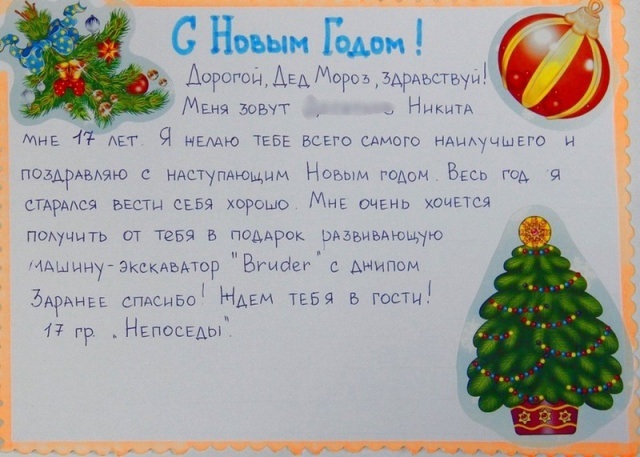 С Новым Годом!
Дорогой, Дед Мороз, здравствуй!
Меня зовут Никита
мне 17 лет. Я желаю тебе всего самого наилучшего и
поздравляю с наступающим Новым годом. Весь год я
старался вести себя хорошо. Мне очень хочется
получить от тебя в подарок развивающую
машину-экскаватор "Bruder" с джипом
Заранее спасибо! Ждем тебя в гости!
17 гр. „Непоседы".